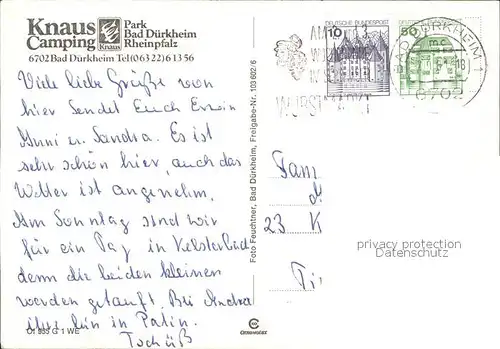 Knaus
Camping
Knaus
Park
Bad Dürkheim
Rheinpfalz
6702 Bad Dürkheim Tel(06322)61356
Viele liebe Grüße von
hier sendet Euch Erwin
Anni u. Sandra. Es ist
sehr schön hier, auch das
Wetter ist angenehm.
Am Sonntag sind wir
für ein Tag in
denn die beiden kleinen
werden getauft. Bei Andra
ihm hin in Patin.
Tschüß
01 935 G 1 WE
Foto Feuchtner, Bad Dürkheim, Freigabe-Nr. 103 602/6
DEUTSCHE BUNDESPOST
10
DEUTSCHE BUNDESPOST
50
BAD DÜRKHEIM 1
mc
18
6702
WURSTMARKT
Fam
23 K
privacy protection
Datenschutz